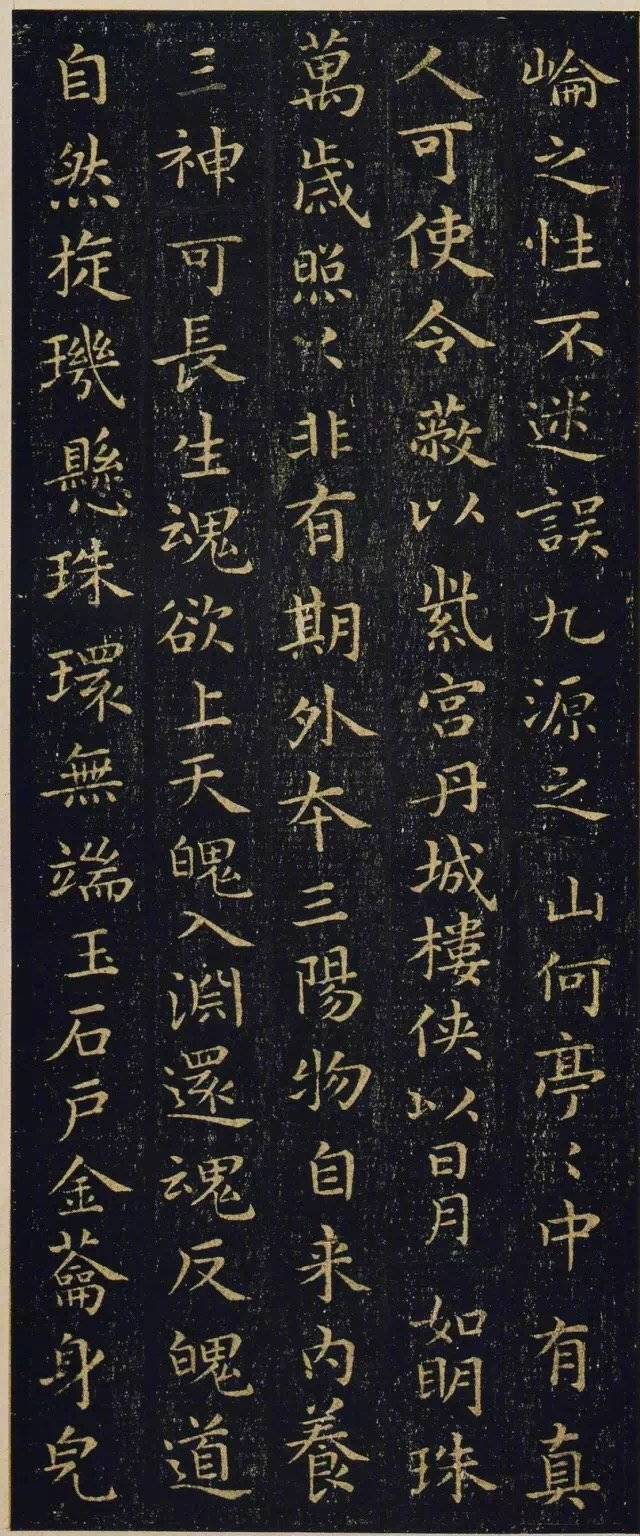 崘之性不迷誤九源之山何亭〻中有真
人可使令蔽以紫宮丹城樓侠以日月如明珠
萬歲照〻非有期外本三陽物自来内養
三神可長生魂欲上天魄入淵還魂反魄道
自然旋璣懸珠環無端玉石戶金蘥身皃